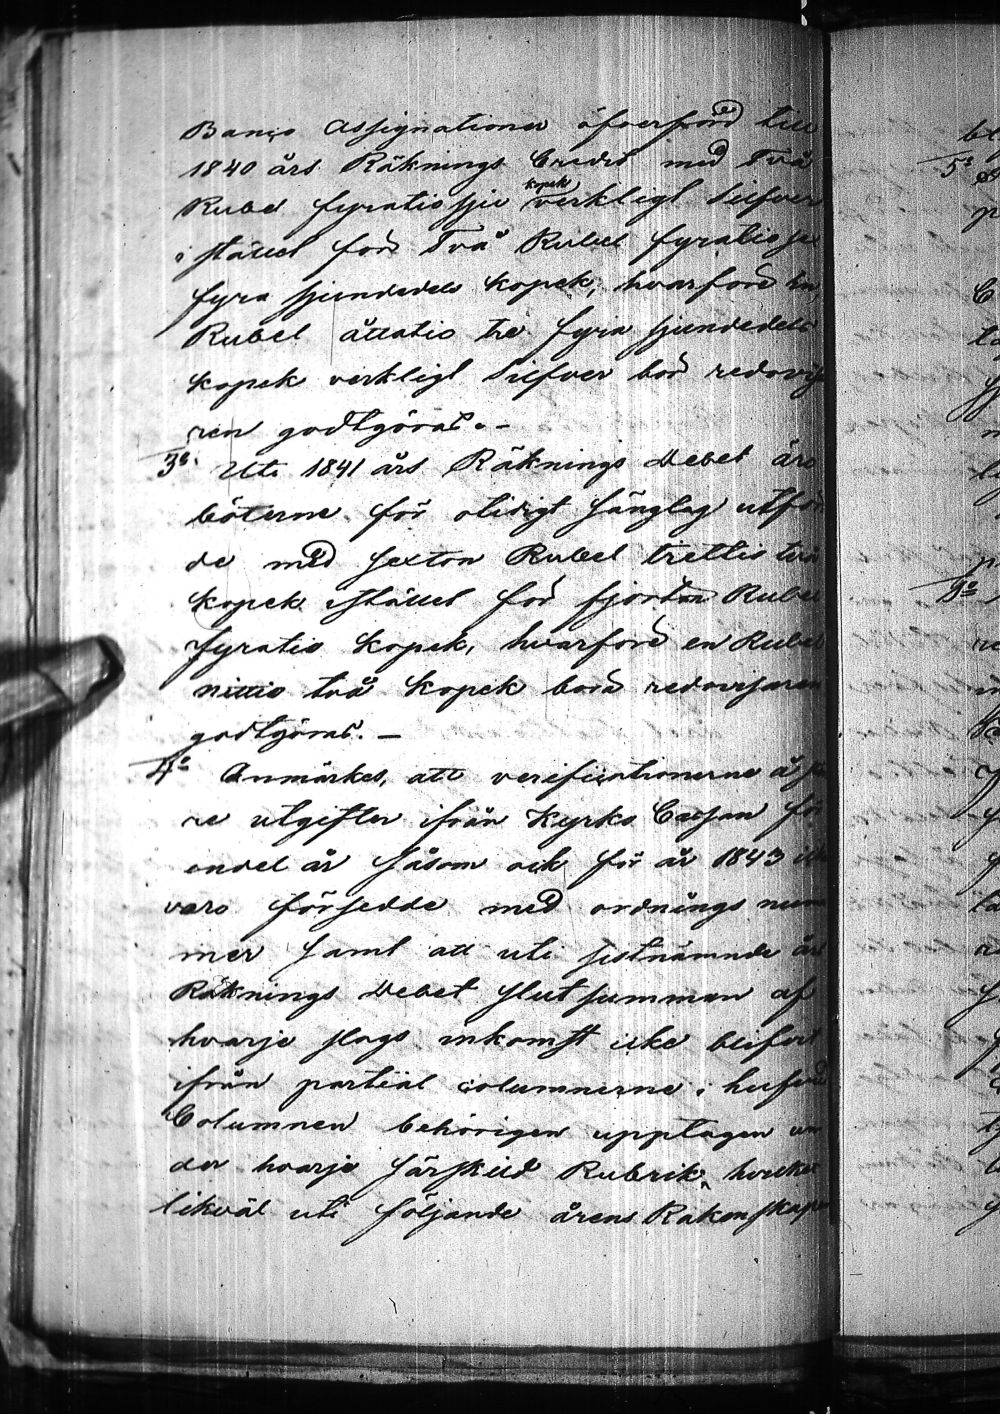 Banco Assignationer öfverförd till
1840 års Räknings Credit med Två
Rubel fyratiosju kopek verkligt Silfver
i stället för Två Rubel fyratiosju
fyra sjundedels kopek, hvarföre en
Rubel åttatio tre fyra sjundedels
kopek verkligt Silfver bör redovisa
ren godtgöras. -
3º. Uti 1841 års Räknings Debet äro
böterne för otidigt sänglag utför
de med sexton Rubel trettio två
kopek istället för fjorton Rubel
fyratio kopek, hvarföre en Rubel
nittio två kopek böra redovisaren
godtgöras. -
4º Anmärkes, att verificationerne å
re utgifter ifrån Kyrko Cassan för
endel år såsom ock för år 1843 icke
varo försedde med ordnings num
mer samt att uti sistnämnde års
Räknings Debet slutsumman af
hvarje slags inkomst icke blifvit
ifrån partial columnerne i hufvud
Columnen behörigen upptagen un
der hvarje särskild Rubrik, hvilket
likväl uti följande årens Räkenskap
5º